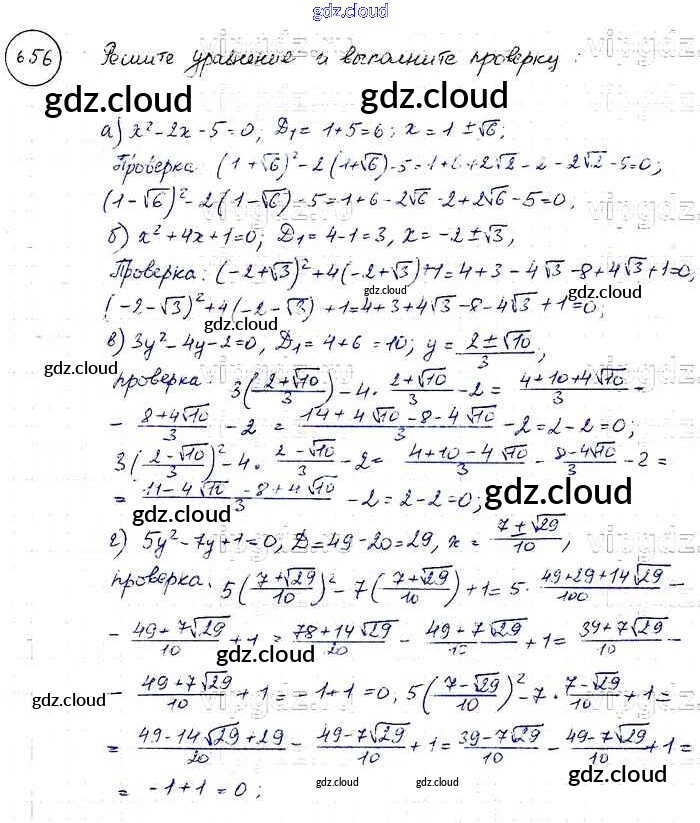 gdz.cloud
656 Решите уравнение и выполните проверку:
gdz.cloud gdz.cloud
а) x²-2x-5=0; Д₁=1+5=6; x=1±√6;
Проверка: (1+√6)²-2(1+√6)-5=1+6+2√2-2-2√2-5=0;
(1-√6)²-2(1-√6)-5=1+6-2√6-2+2√6-5=0;
б) x²+4x+1=0; Д₁=4-1=3, x=-2±√3,
Проверка: (-2+√3)²+4(-2+√3)+1=4+3-4√3-8+4√3+1=0,
(-2-√3)²+4(-2-√3)+1=4+3+4√3-8-4√3+1=0;
gdz.cloud gdz.cloud
в) 3y²-4y-2=0, Д₁=4+6=10; y=(2±√10)/3,
gdz.cloud gdz.cloud
проверка: 3((2+√10)/3)-4·(2+√10)/3-2=(4+10+4√10)/3-
-(8+4√10)/3-2=(14+4√10-8-4√10)/3-2=2-2=0;
3((2-√10)/3)²-4·(2-√10)/3-2=(4+10-4√10)/3-(8-4√10)/3-2=
=(11-4√10-8+4√10)/3-2=2-2=0;
gdz.cloud gdz.cloud
г) 5y²-7y+1=0, Д=49-20=29, x=(7±√29)/10,
проверка. 5((7+√29)/10)²-7((7+√29)/10)+1=5·(49+29+14√29)/100-
-(49+7√29)/10+1=(78+14√29)/20-(49+7√29)/10+1=(39+7√29)/10-
gdz.cloud gdz.cloud
-(49+7√29)/10+1=-1+1=0, 5((7-√29)/10)²-7·(7-√29)/10+1=
gdz.cloud gdz.cloud
=(49-14√29+29)/20-(49-7√29)/10+1=(39-7√29)/10-(49-7√29)/10+1=
=-1+1=0;
gdz.cloud gdz.cloud gdz.cloud